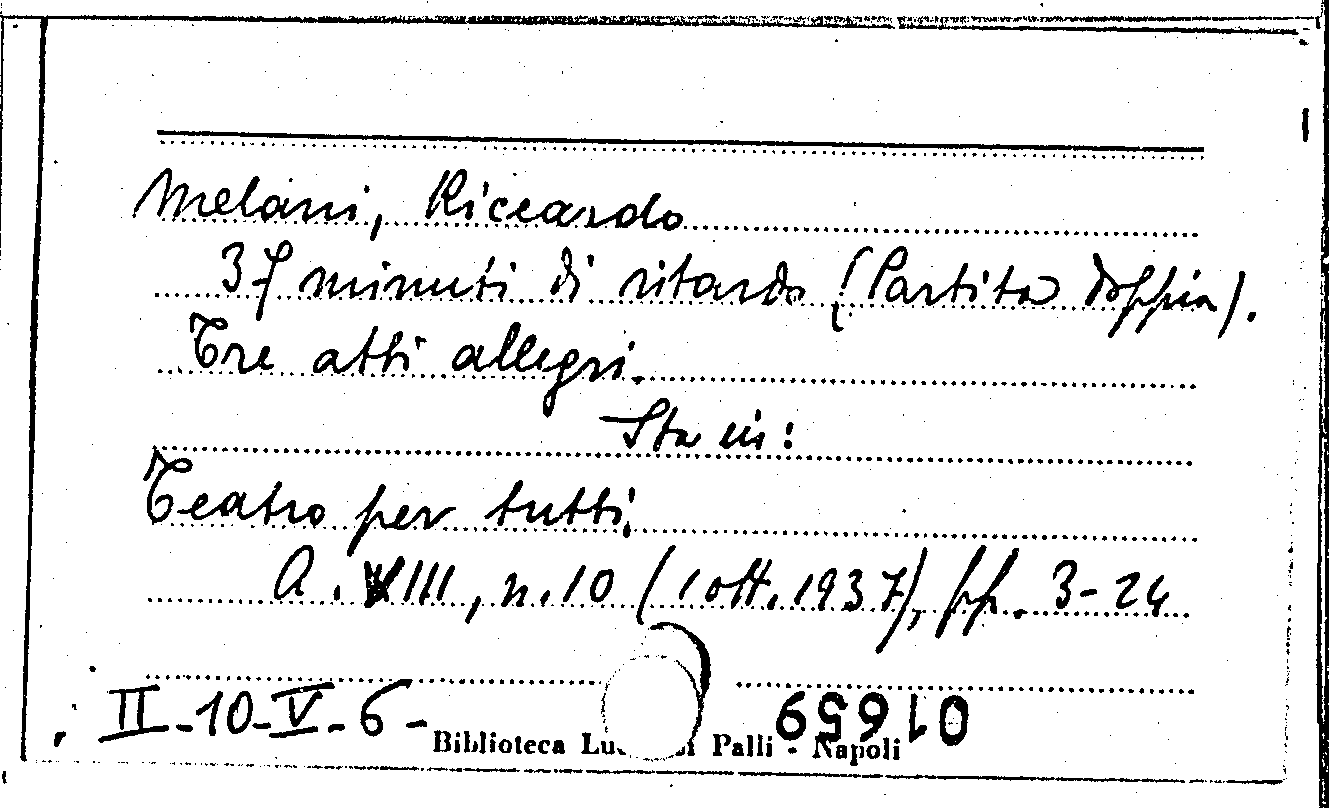 Melani, Riccardo
37 minuti di ritardo (Partita doppia).
Tre atti allegri.
Sta in:
Teatro per tutti,
A. XIII, n. 10 (1 ott. 1937), pp. 3-24
II-10-V-6-
01659
Biblioteca Lu i Palli - Napoli